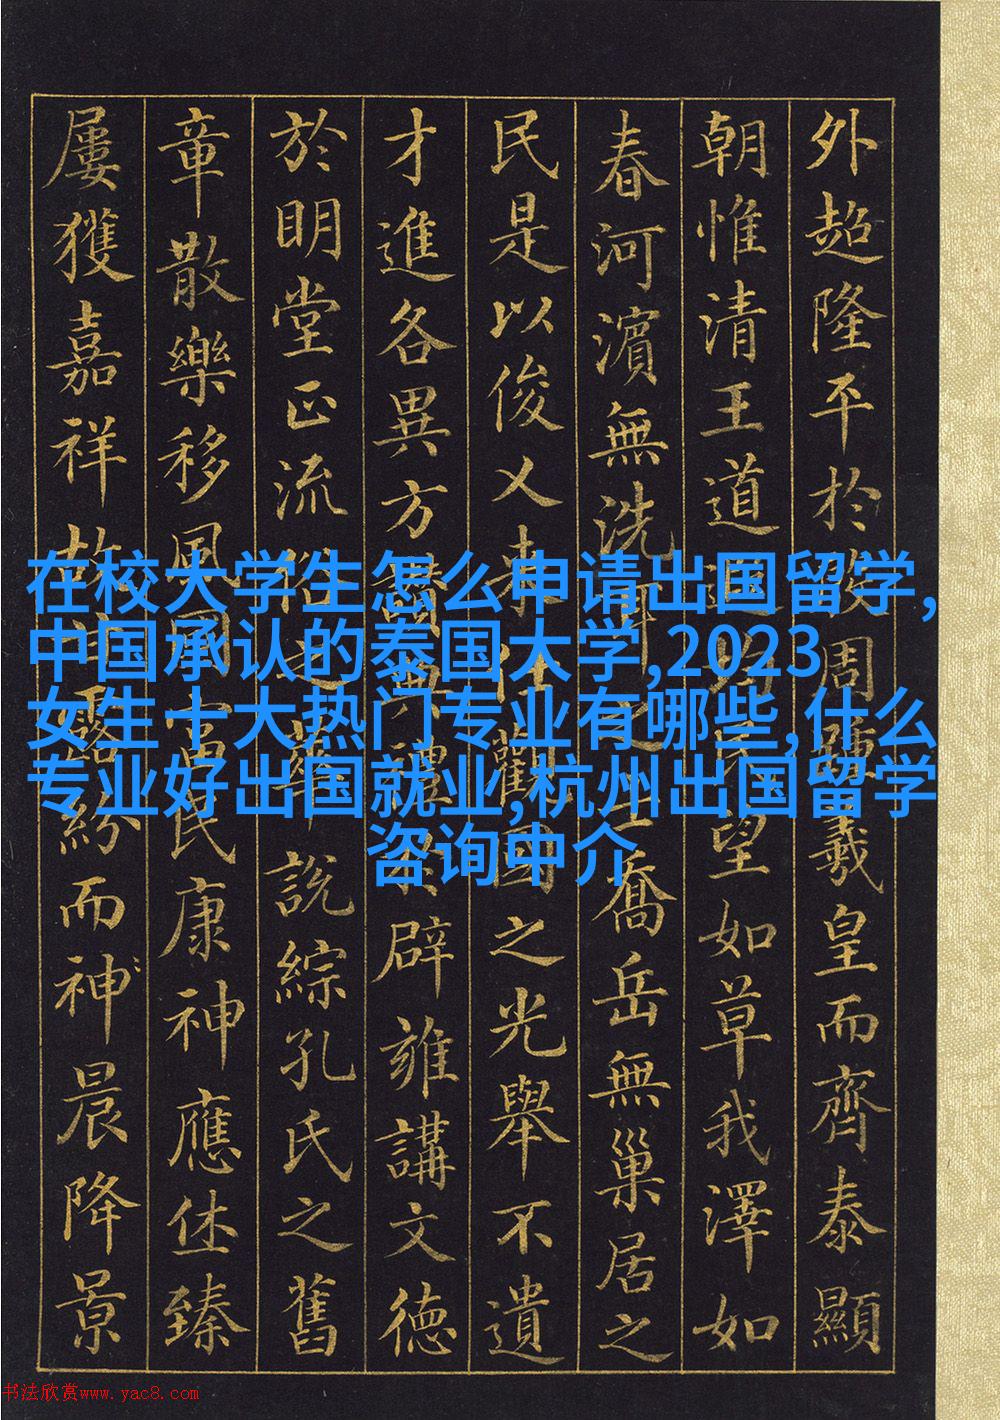 外超隆平於殷周踵羲皇而齊泰顯
朝惟清王道遐均民望如草我澤如
春河濱無洗耳之士喬岳無巢居之
民是以俊乂來仕觀國之光舉不遺
才進各異方讚典禮於辟雍講文德
於明堂正流俗之華說綜孔氏之舊
章散樂移風國富民康神應休臻
屢獲嘉祥故甘露紛而神晨降景
在校大学生怎么申请出国留学,
中国承认的泰国大学,2023
女生十大热门专业有哪些,什么
专业好出国就业,杭州出国留学
咨询中介
书法欣赏www.yac8.com